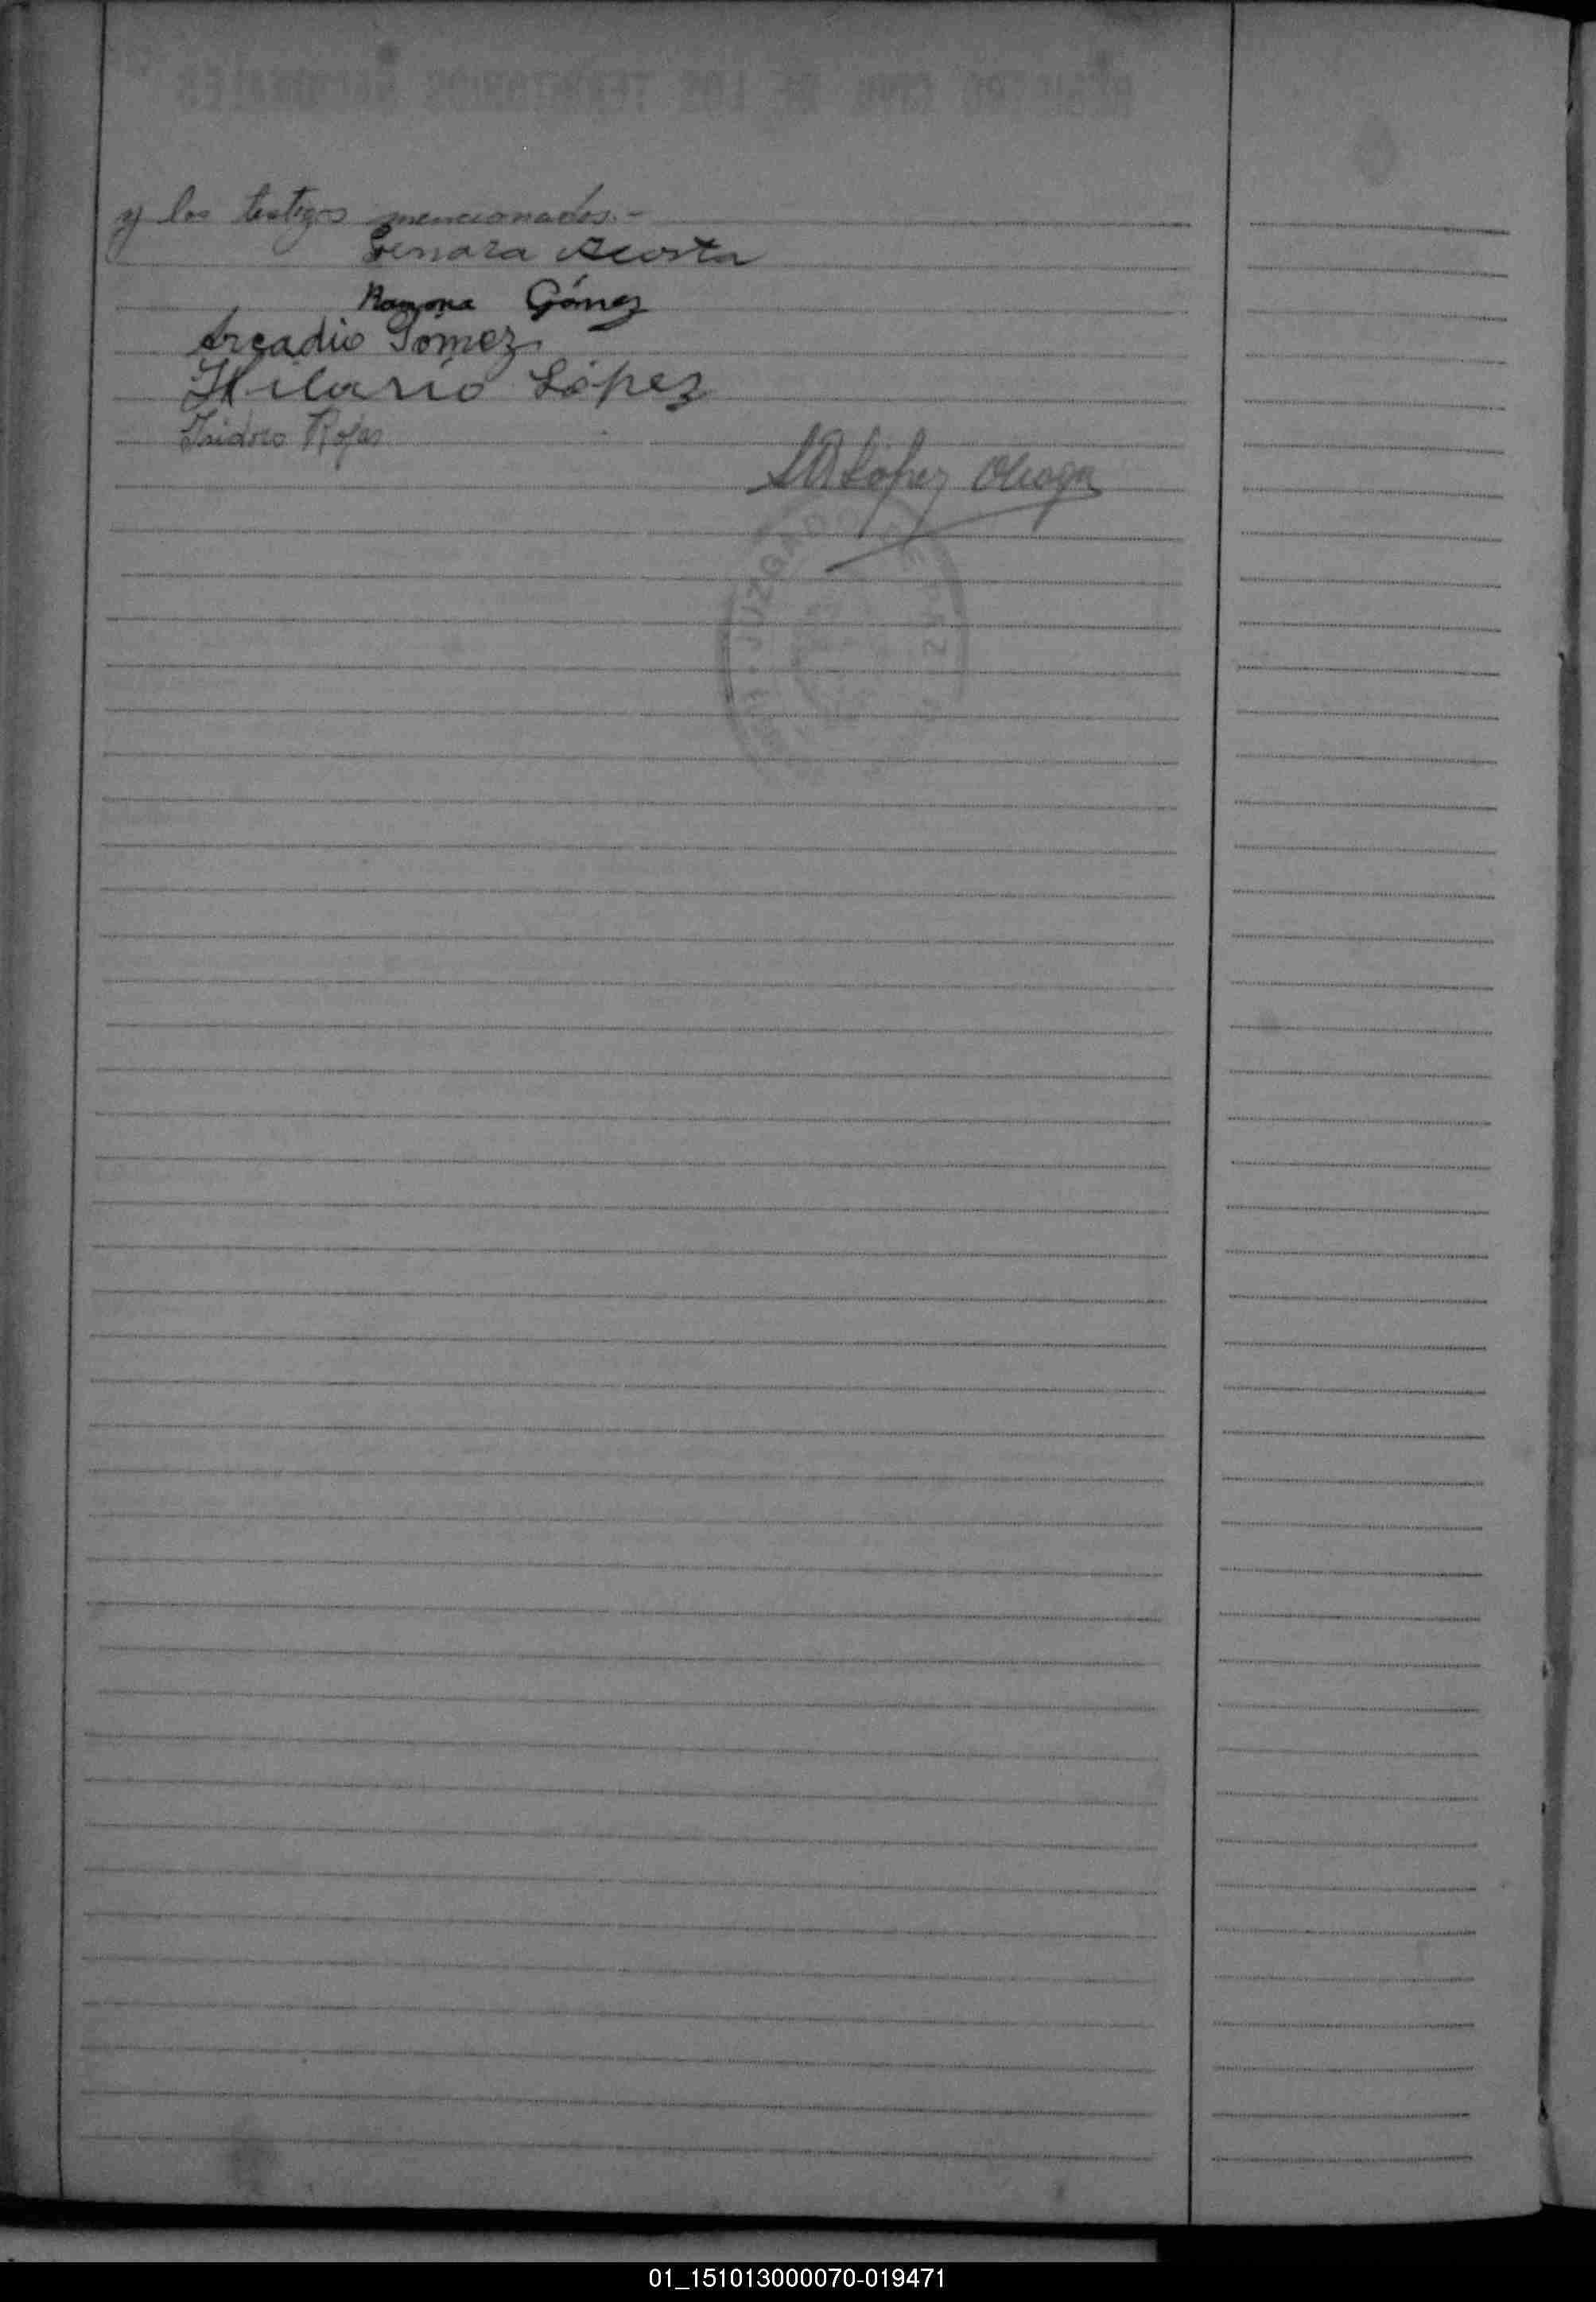 y los testigos mencionados.-
Genara Acosta
Ramona Gómez
Arcadio Gomez
Hilario López
Isidoro Rojas
López
JUZGADO DE PAZ
01_151013000070-019471